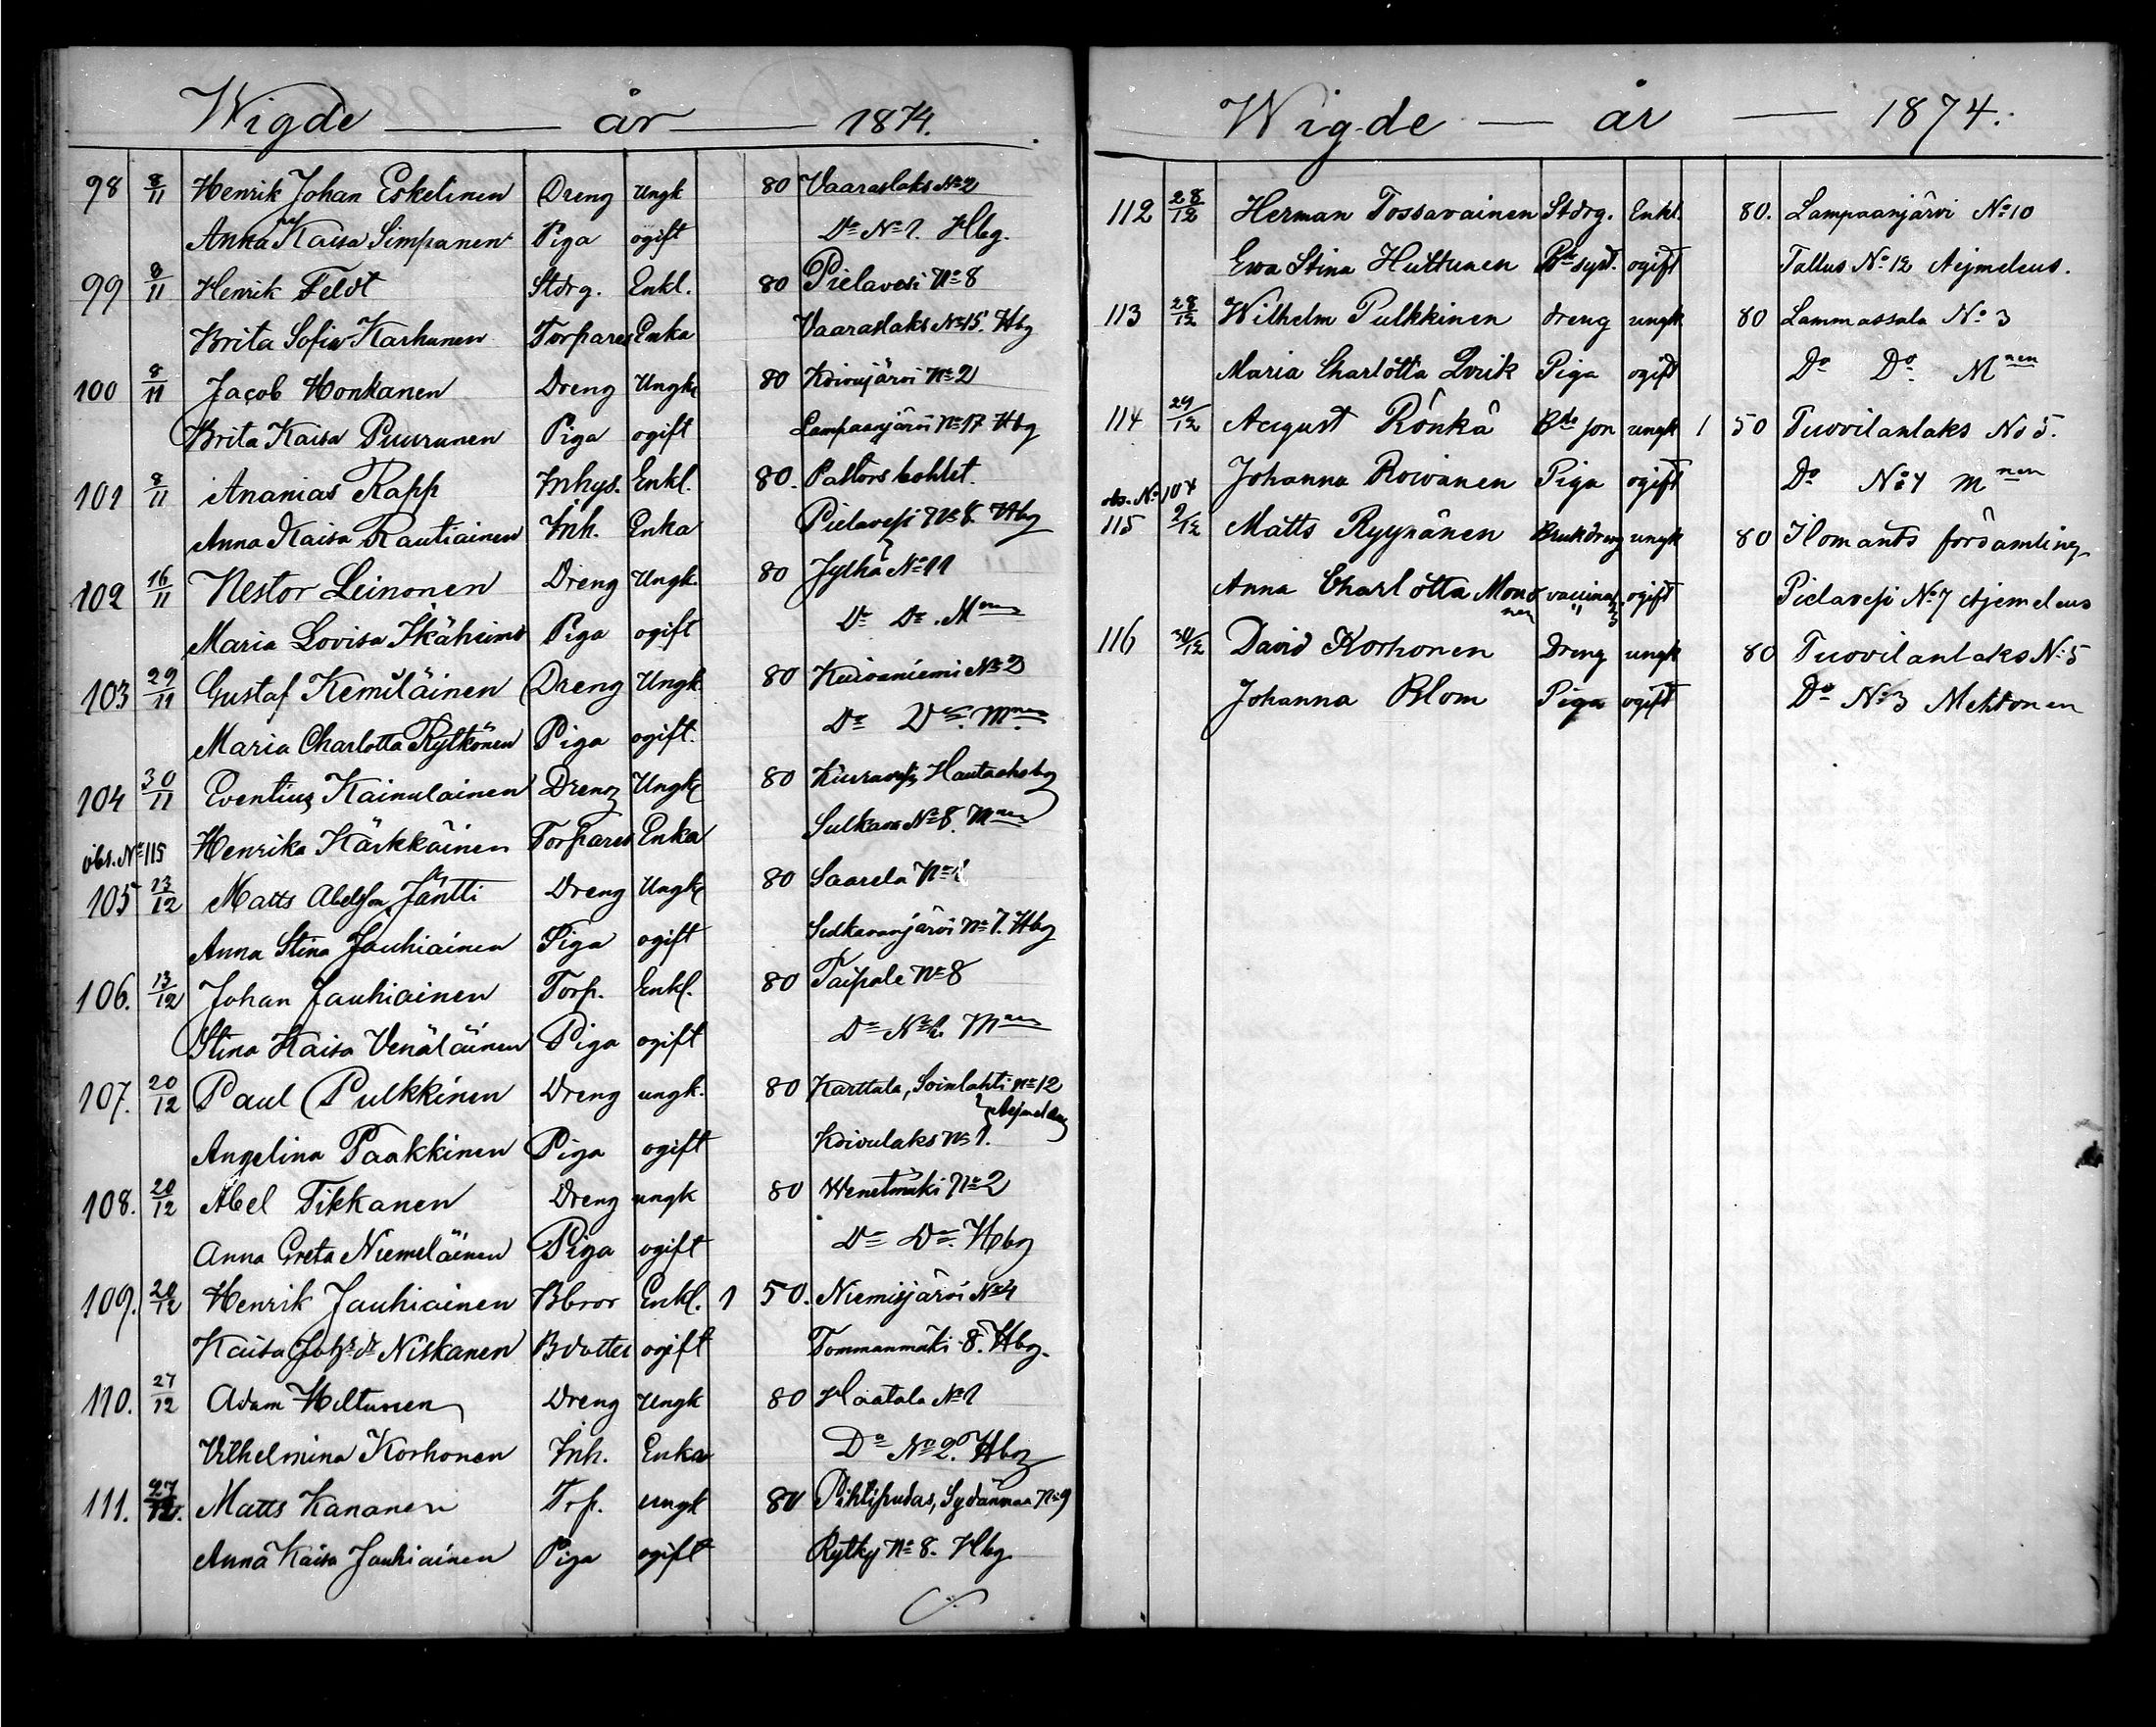 Wigde — år — 1874.
98 8/11 Henrik Johan Eskelinen Dreng Ungk 80 Vaaraslaks No 2
Anna Kaisa Simpanen Piga ogift Do No 1. Hbg.
99 8/11 Henrik Feldt Stdrg. Enkl. 80 Pielavesi No 8
Brita Sofia Karhunen Torpares Enka Vaaraslaks No 15. Hbg
100 8/11 Jacob Honkanen Dreng Ungk 80 Koivujärvi No 2
Brita Kaisa Puurunen Piga ogift Lampaanjärvi No 17 Hbg
101 8/11 Ananias Rapp Inhys. Enkl. 80. Pastorsbohlet.
Anna Kaisa Rautiainen Inh. Enka Pielavesi No 8. Hbg
102 16/11 Nestor Leinonen Dreng Ungk. 80 Jylhä No 11
Maria Lovisa Ikäheimo Piga ogift Do Do. Mnen
103 29/11 Gustaf Kemiläinen Dreng Ungk 80 Kuivaniemi No 2
Maria Charlotta Rytkönen Piga ogift. Do Do. Mnen
104 30/11 Eventius Kainulainen Dreng Ungk 80 Kiuruvesi, Hautaksbg
Henrika Kärkkäinen Torpares Enka Sulkava No 8. Mnen
obs. No 115
105 13/12 Matts Abelsson Jäntti Dreng Ungk 80 Saarela No
Anna Stina Jauhiainen Piga ogift Sulkavanjärvi No 7. Hbg
106. 13/12 Johan Jauhiainen Torp. Enkl. 80 Taipale No 8
Stina Kaisa Venäläinen Piga ogift Do No 2. Mnen
107. 20/12 Paul Pulkkinen Dreng ungk. 80 Karttula, Soinlahti No 12
Aejmelaeus
Angelina Paakkinen Piga ogift Koivulaks No 1.
108. 20/12 Abel Tikkanen Dreng ungk 80 Wenetmäki No 2
Anna Greta Niemeläinen Piga ogift Do Do. Hbg
109. 20/12 Henrik Jauhiainen Bbror Enkl. 1 50. Niemisjärvi No 4
Kaisa Johs dr Niskanen Bdotter ogift Tommanmäki 8. Hbg.
110. 27/12 Adam Hiltunen Dreng Ungk 80 Haatala No 1
Vilhelmina Korhonen Inh. Enka Do No 2. Hbg
111. 27/12. Matts Kananen Trp. ungk 80 Pihtipudas, Sydänmaa No 9
Anna Kaisa Jauhiainen Piga ogift Rytky No 8. Hbg
Wigde — år — 1874.
112 28/12 Herman Tossavainen Stdrg. Enkl. 80. Lampaanjärvi No 10
Ewa Stina Huttunen Bde syst. ogift Tallus No 12 Aejmeleus.
113 28/12 Wilhelm Pulkkinen dreng ungk 80 Lammassalo No 3
Maria Charlotta Qvick Piga ogift Do Do. Mnen
114 29/12 August Rönkä Bde son ungk 1 50 Tuovilanlaks No 5.
Johanna Roivanen Piga ogift Do No 4 Mnen
obs. No 104
115 9/12 Matts Ryynänen Bruksdreng ungk 80 Ilomants församling
Anna Charlotta Mononen ogift Pielavesi No 7 Ajemeleus
116 30/12 David Korhonen Dreng ungk 80 Tuovilanlaks No 5
Johanna Blom Piga ogift Do No 3 Mehtonen